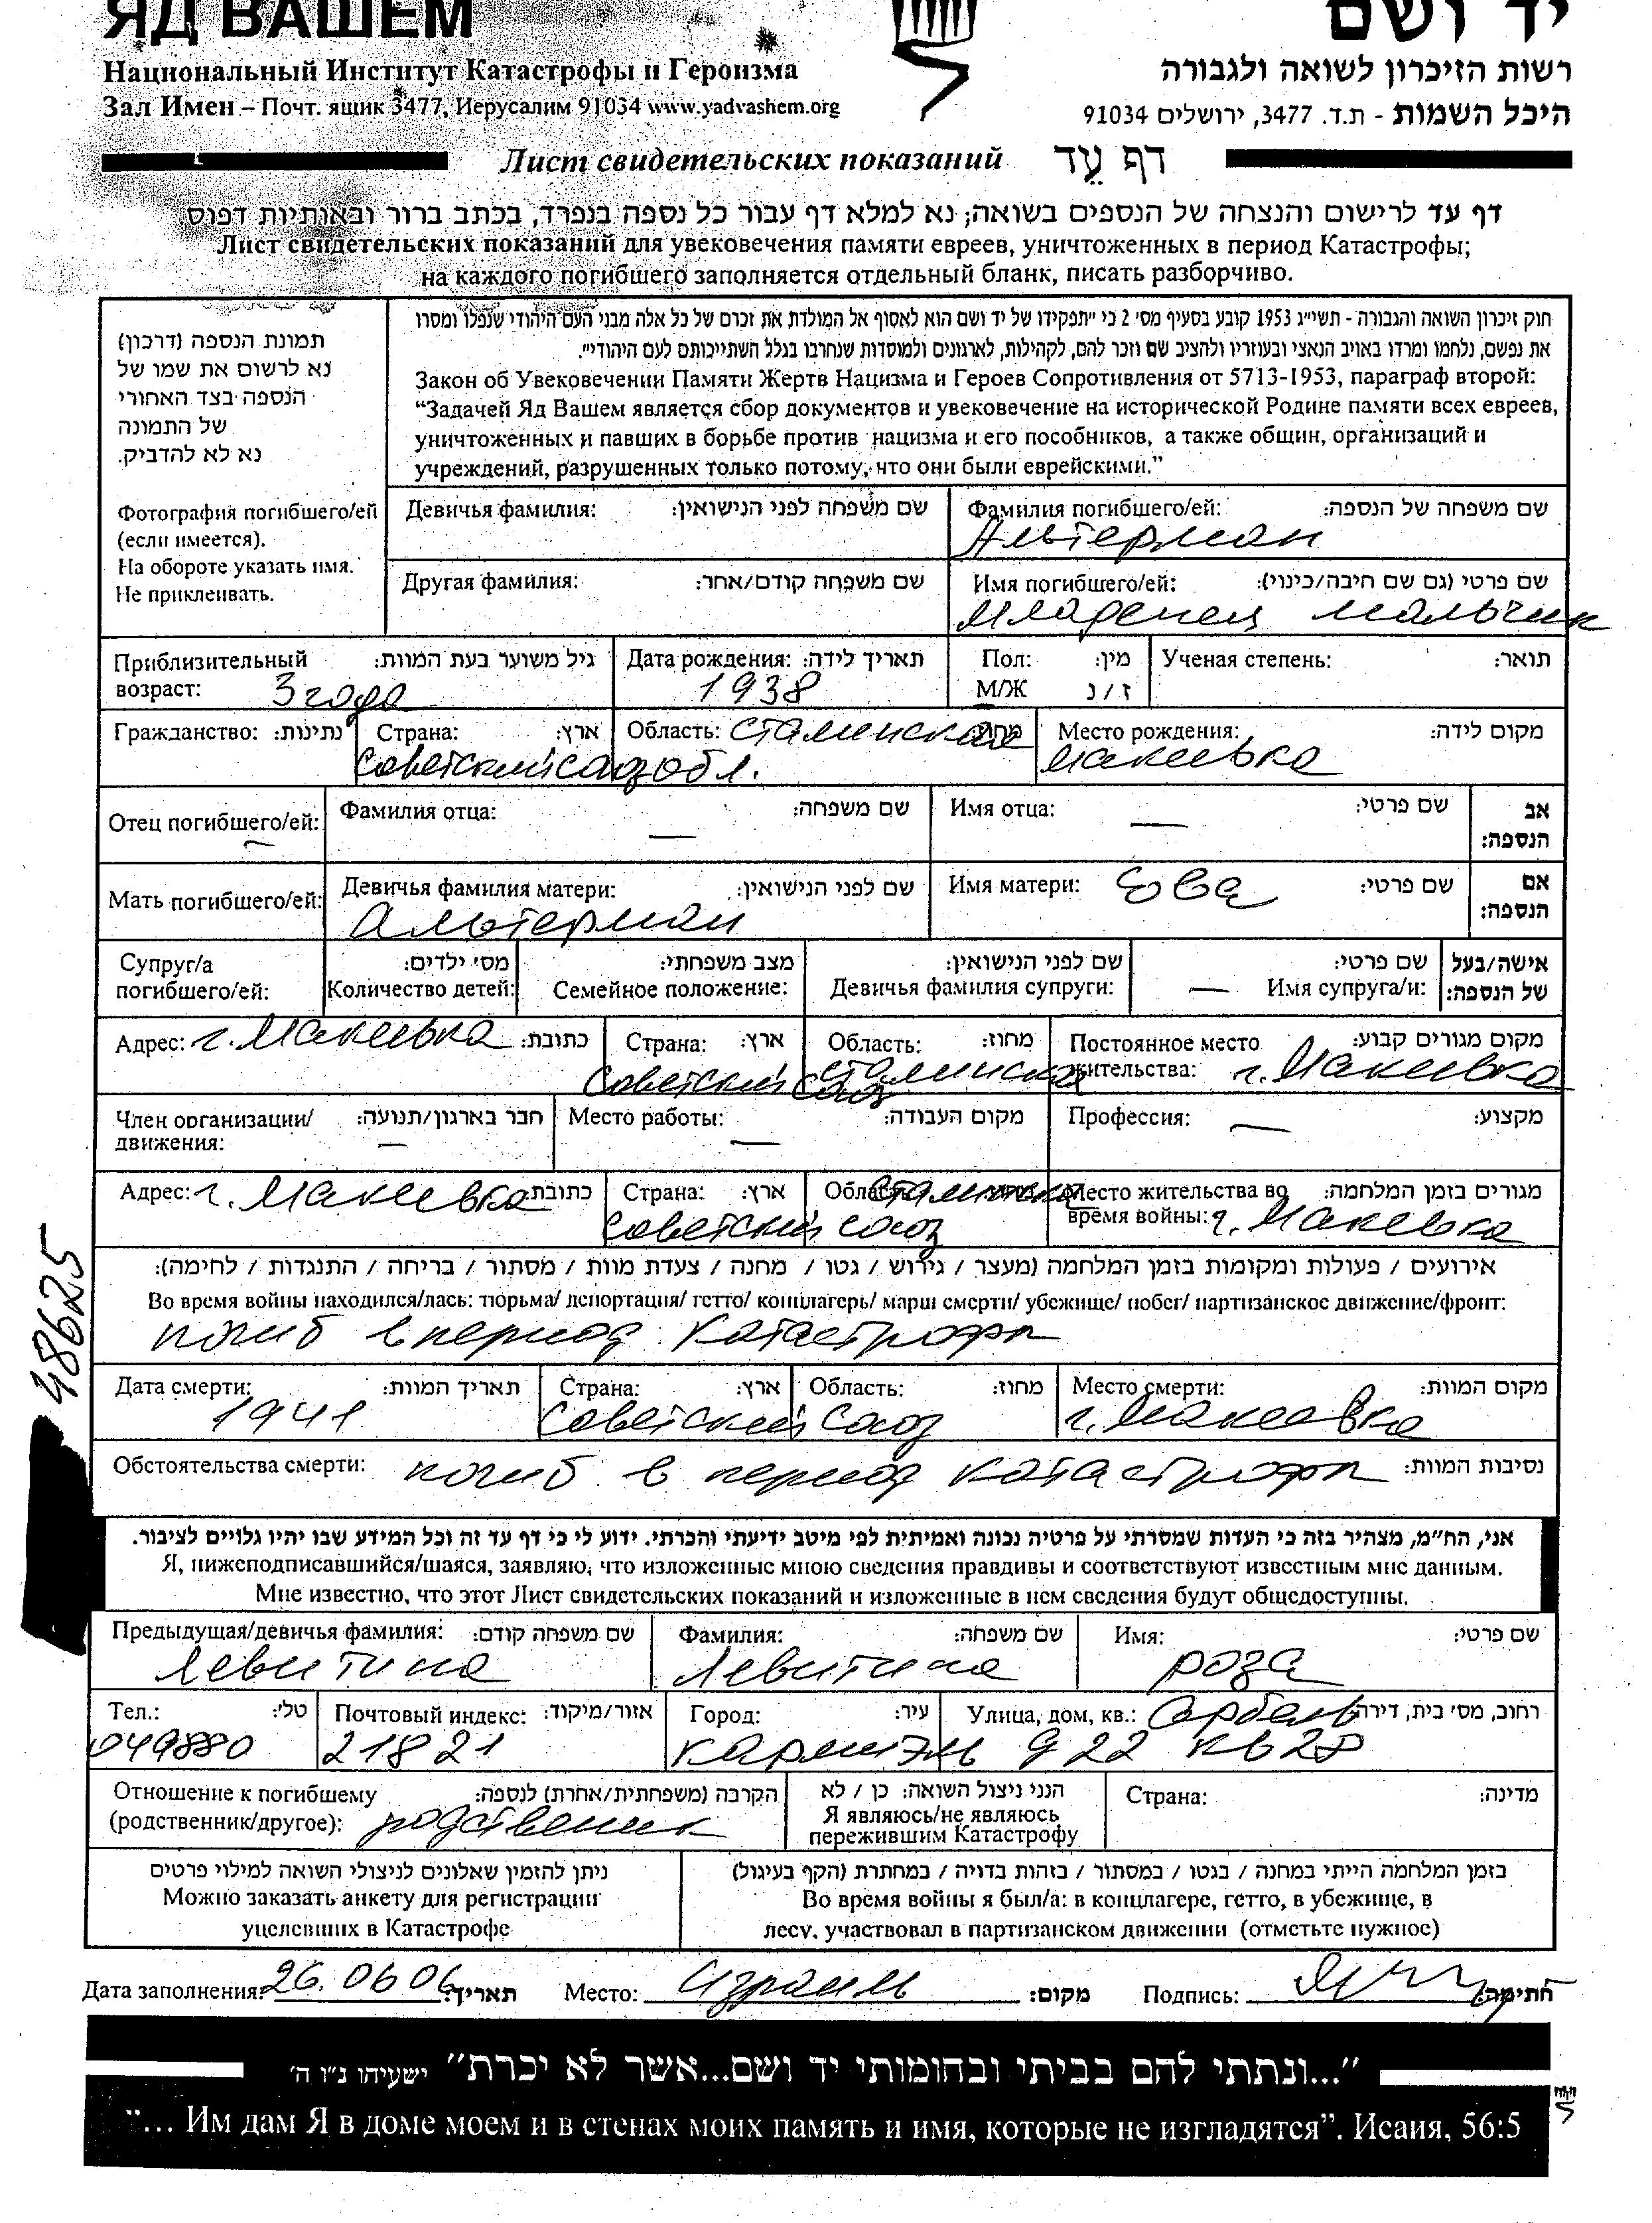 ЯД ВАШЕМ
יד ושם
Национальный Институт Катастрофы и Героизма
רשות הזיכרון לשואה ולגבורה
Зал Имен – Почт. ящик 3477, Иерусалим 91034 www.yadvashem.org
היכל השמות - ת.ד. 3477, ירושלים 91034
Лист свидетельских показаний דף עֵד
דף עד לרישום והנצחה של הנספים בשואה; נא למלא דף עבור כל נספה בנפרד, בכתב ברור ובאותיות דפוס
Лист свидетельских показаний для увековечения памяти евреев, уничтоженных в период Катастрофы;
на каждого погибшего заполняется отдельный бланк, писать разборчиво.
תמונת הנספה (דרכון)
נא לרשום את שמו של
הנספה בצד האחורי
של התמונה
נא לא להדביק.
Фотография погибшего/ей
(если имеется).
На обороте указать имя.
Не приклеивать.
חוק זיכרון השואה והגבורה - תשי״ג 1953 קובע בסעיף מס׳ 2 כי ״תפקידו של יד ושם הוא לאסוף אל המולדת את זכרם של כל אלה מבני העם היהודי שנפלו ומסרו
את נפשם, נלחמו ומרדו באויב הנאצי ובעוזריו ולהציב שם וזכר להם, לקהילות, לארגונים ולמוסדות שנחרבו בגלל השתייכותם לעם היהודי״.
Закон об Увековечении Памяти Жертв Нацизма и Героев Сопротивления от 5713-1953, параграф второй:
“Задачей Яд Вашем является сбор документов и увековечение на исторической Родине памяти всех евреев,
уничтоженных и павших в борьбе против нацизма и его пособников, а также общин, организаций и
учреждений, разрушенных только потому, что они были еврейскими.”
Девичья фамилия: שם משפחה לפני הנישואין: Фамилия погибшего/ей: שם משפחה של הנספה:
Альтерман
Другая фамилия: שם משפחה קודם/אחר: Имя погибшего/ей: שם פרטי (גם שם חיבה/כינוי):
младенец мальчик
Приблизительный גיל משוער בעת המוות: Дата рождения: תאריך לידה: Пол: מין: Ученая степень: תואר:
возраст: 3 года 1938 М/Ж ז / נ
Гражданство: נתינות: Страна: ארץ: Область: Сталинская מחוז: Место рождения: מקום לידה:
Советский союз обл. Макеевка
Отец погибшего/ей: Фамилия отца: שם משפחה: — Имя отца: שם פרטי: — אב
הנספה:
Мать погибшего/ей: Девичья фамилия матери: שם לפני הנישואין: Имя матери: Ева שם פרטי: אם
הנספה:
Альтерман
Супруг/а מס׳ ילדים: מצב משפחתי: שם לפני הנישואין: שם פרטי: אישה/בעל
погибшего/ей: Количество детей: Семейное положение: Девичья фамилия супруги: — Имя супруга/и: של הנספה:
Адрес: г. Макеевка כתובת: Страна: ארץ: Область: מחוז: Постоянное место מקום מגורים קבוע:
Советский союз Сталинская жительства: г. Макеевка
Член организации/ חבר בארגון/תנועה: Место работы: מקום העבודה: Профессия: — מקצוע:
движения: — —
Адрес: г. Макеевка כתובת: Страна: ארץ: Область: Сталинска Место жительства во מגורים בזמן המלחמה:
Советский союз время войны: г. Макеевка
אירועים / פעולות ומקומות בזמן המלחמה (מעצר / גירוש / גטו / מחנה / צעדת מוות / מסתור / בריחה / התנגדות / לחימה):
Во время войны находился/лась: тюрьма/ депортация/ гетто/ концлагерь/ марш смерти/ убежище/ побег/ партизанское движение/фронт:
погиб в период Катастрофы
48625
Дата смерти: תאריך המוות: Страна: ארץ: Область: מחוז: Место смерти: מקום המוות:
1941 Советский Союз г. Макеевка
Обстоятельства смерти: погиб в период катастрофы נסיבות המוות:
אני, הח״מ, מצהיר בזה כי העדות שמסרתי על פרטיה נכונה ואמיתית לפי מיטב ידיעתי והכרתי. ידוע לי כי דף עד זה וכל המידע שבו יהיו גלויים לציבור.
Я, нижеподписавшийся/шаяся, заявляю, что изложенные мною сведения правдивы и соответствуют известным мне данным.
Мне известно, что этот Лист свидетельских показаний и изложенные в нем сведения будут общедоступны.
Предыдущая/девичья фамилия: שם משפחה קודם: Фамилия: שם משפחה: Имя: שם פרטי:
Левитина Левитина роза
Тел.: טל׳: Почтовый индекс: אזור/מיקוד: Город: עיר: Улица, дом, кв.: Арбель רחוב, מס׳ בית, דירה:
049880 21821 Кармиэль д 22 кв 28
Отношение к погибшему הקרבה (משפחתית/אחרת) לנספה: הנני ניצול השואה: כן / לא Страна: מדינה:
(родственник/другое): родственник Я являюсь/не являюсь
пережившим Катастрофу
ניתן להזמין שאלונים לניצולי השואה למילוי פרטים
Можно заказать анкету для регистрации
уцелевших в Катастрофе
בזמן המלחמה הייתי במחנה / בגטו / במסתור / בזהות בדויה / במחתרת (הקף בעיגול)
Во время войны я был/а: в концлагере, гетто, в убежище, в
лесу, участвовал в партизанском движении (отметьте нужное)
Дата заполнения: 26.06 06 תאריך: Место: Израиль מקום: Подпись: חתימה:
״...ונתתי להם בביתי ובחומותי יד ושם...אשר לא יכרת״ ישעיהו נ״ו ה׳
“... Им дам Я в доме моем и в стенах моих память и имя, которые не изгладятся”. Исаия, 56:5